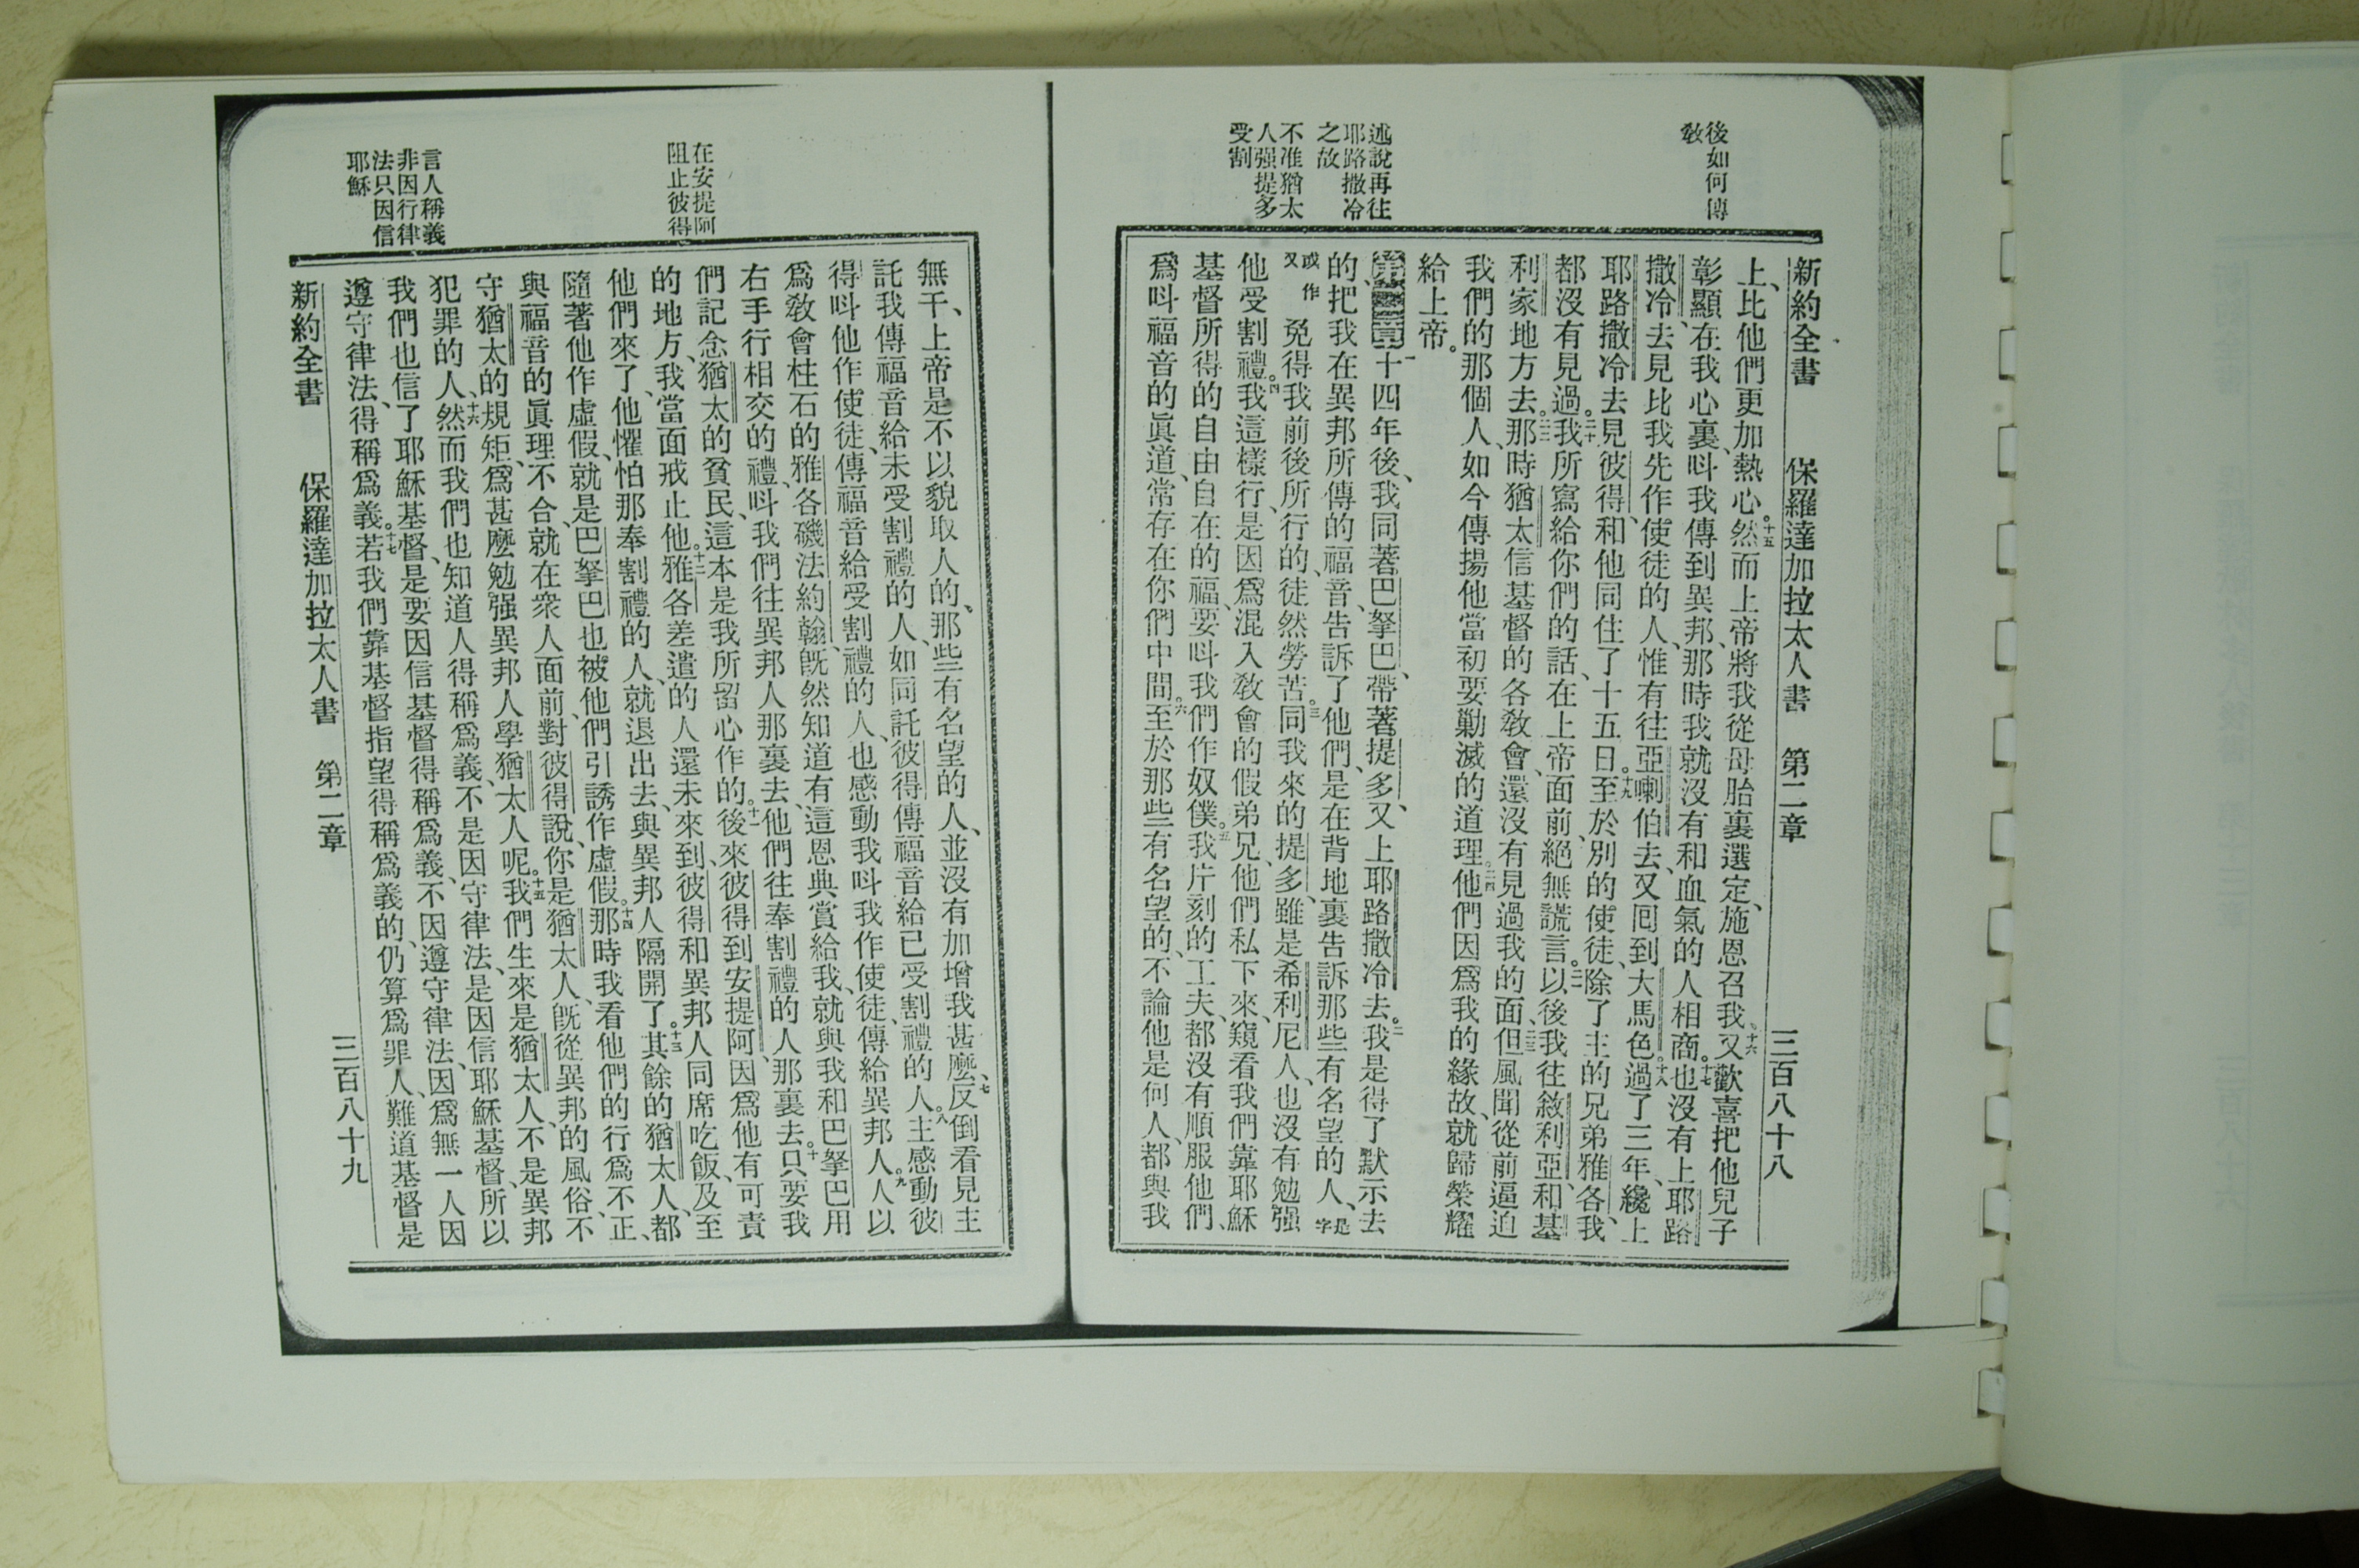 後如何傳
教
述說再往
耶路撒冷
之故
不准猶太
人强提多
受割
新約全書　保羅達加拉太人書　第二章　三百八十八
上、比他們更加熱心。十五然而上帝將我從母胎裏選定、施恩召我、十六又歡喜把他兒子
彰顯在我心裏、呌我傳到異邦、那時我就沒有和血氣的人相商。十七也沒有上耶路
撒冷、去見比我先作使徒的人、惟有往亞喇伯去、又囘到大馬色。十八過了三年、纔上
耶路撒冷去見彼得、和他同住了十五日。十九至於別的使徒、除了主的兄弟雅各、我
都沒有見過。二十我所寫給你們的話、在上帝面前、絕無謊言。二一以後我往敘利亞、和基
利家地方去。二二那時猶太信基督的各教會、還沒有見過我的面、二三但風聞從前逼迫
我們的那個人、如今傳揚他當初要勦滅的道理。二四他們因爲我的緣故、就歸榮耀
給上帝。
第二章一十四年後、我同著巴拏巴、帶著提多、又上耶路撒冷去。二我是得了默示去
的、把我在異邦所傳的福音、告訴了他們、是在背地裏告訴那些有名望的人、是字
或作又免得我前後所行的、徒然勞苦。三同我來的提多、雖是希利尼人、也沒有勉强
他受割禮。四我這樣行、是因爲混入教會的假弟兄、他們私下來、窺看我們靠耶穌
基督所得的自由自在的福、要呌我們作奴僕。五我片刻的工夫、都沒有順服他們、
爲呌福音的眞道、常存在你們中間。六至於那些有名望的、不論他是何人、都與我
在安提阿
阻止彼得
言人稱義
非因行律
法只因信
耶穌
無干、上帝是不以貌取人的、那些有名望的人、並沒有加增我甚麽、七反倒看見主
託我傳福音給未受割禮的人、如同託彼得傳福音給已受割禮的人。八主感動彼
得呌他作使徒、傳福音給受割禮的人、也感動我呌我作使徒、傳給異邦人。九人以
爲教會柱石的雅各磯法約翰、旣然知道有這恩典賞給我、就與我和巴拏巴用
右手行相交的禮、呌我們往異邦人那裏去、他們往奉割禮的人那裏去。十只要我
們記念猶太的貧民、這本是我所留心作的。十一後來彼得到安提阿、因爲他有可責
的地方、我當面戒止他。十二雅各差遣的人還未來到、彼得和異邦人同席吃飯、及至
他們來了、他懼怕那奉割禮的人、就退出去、與異邦人隔開了。十三其餘的猶太人、都
隨著他作虛假、就是巴拏巴也被他們引誘作虛假。十四那時我看他們的行爲不正、
與福音的眞理不合、就在衆人面前、對彼得說、你是猶太人、旣從異邦的風俗、不
守猶太的規矩、爲甚麽勉强異邦人學猶太人呢。十五我們生來是猶太人、不是異邦
犯罪的人、十六然而我們也知道人得稱爲義、不是因守律法、是因信耶穌基督、所以
我們也信了耶穌基督、是要因信基督得稱爲義、不因遵守律法、因爲無一人因
遵守律法、得稱爲義。十七若我們靠基督指望得稱爲義的、仍算爲罪人、難道基督是
新約全書　保羅達加拉太人書　第二章　三百八十九